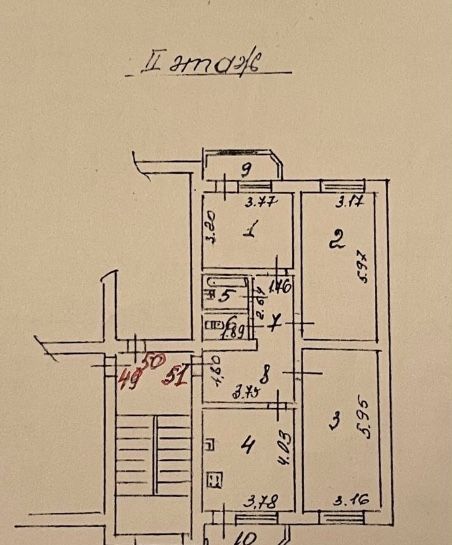 II этаж
9
3.77
3.17
3.20
1
2
5.97
1.76
5
2.64
6
1.89
7
50
49
51
1,80
8
3.75
3
5.95
4
4.03
3.78
3.16
10